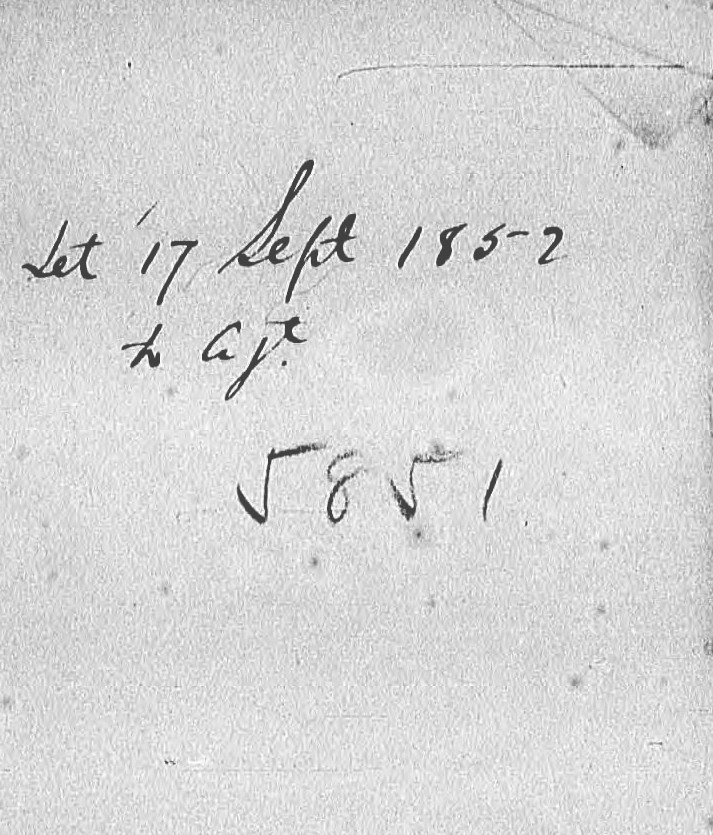 Let 17 Sept 1852
to
5851